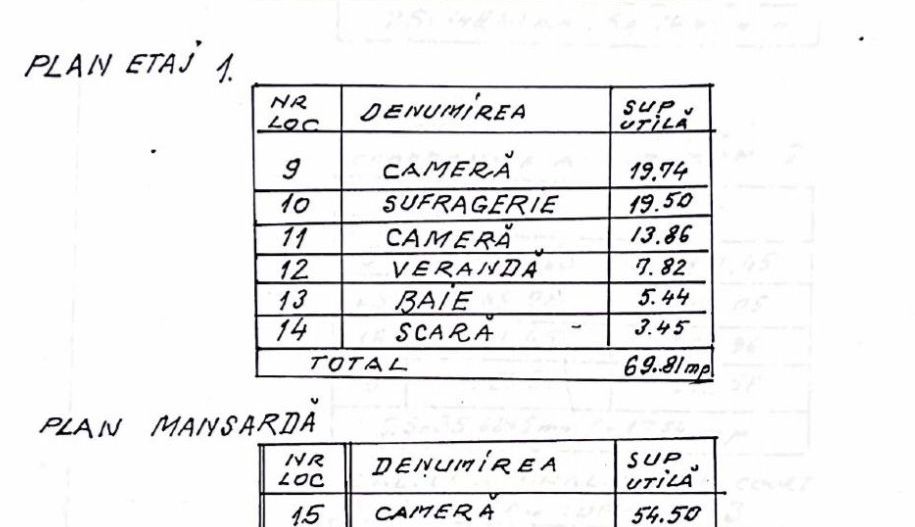 PLAN ETAJ 1.
NR LOC DENUMIREA SUP UTILĂ
9 CAMERĂ 19.74
10 SUFRAGERIE 19.50
11 CAMERĂ 13.86
12 VERANDĂ 7.82
13 BAIE 5.44
14 SCARĂ 3.45
TOTAL 69.81 mp
PLAN MANSARDĂ
NR LOC DENUMIREA SUP UTILĂ
15 CAMERĂ 54.50